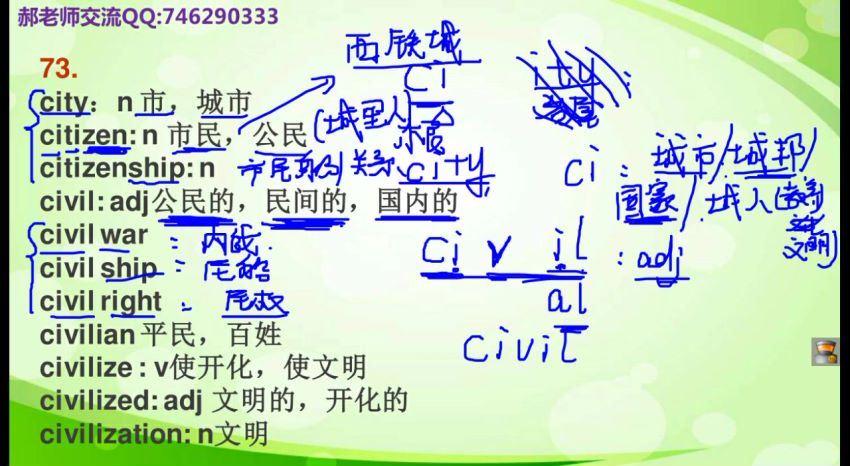 郝老师交流QQ:746290333
西铁城
73.
ci ity
city：n 市，城市
citizen: n 市民，公民 (城里人)
citizenship: n 关系 city
ci : 城市/城邦/
国家/城人
文明)
civil: adj公民的，民间的，国内的
civil war : 内战.
ci v il : adj
civil ship :
civil right : 民权
al
civil
civilian 平民，百姓
civilize : v使开化，使文明
civilized: adj 文明的，开化的
civilization: n文明